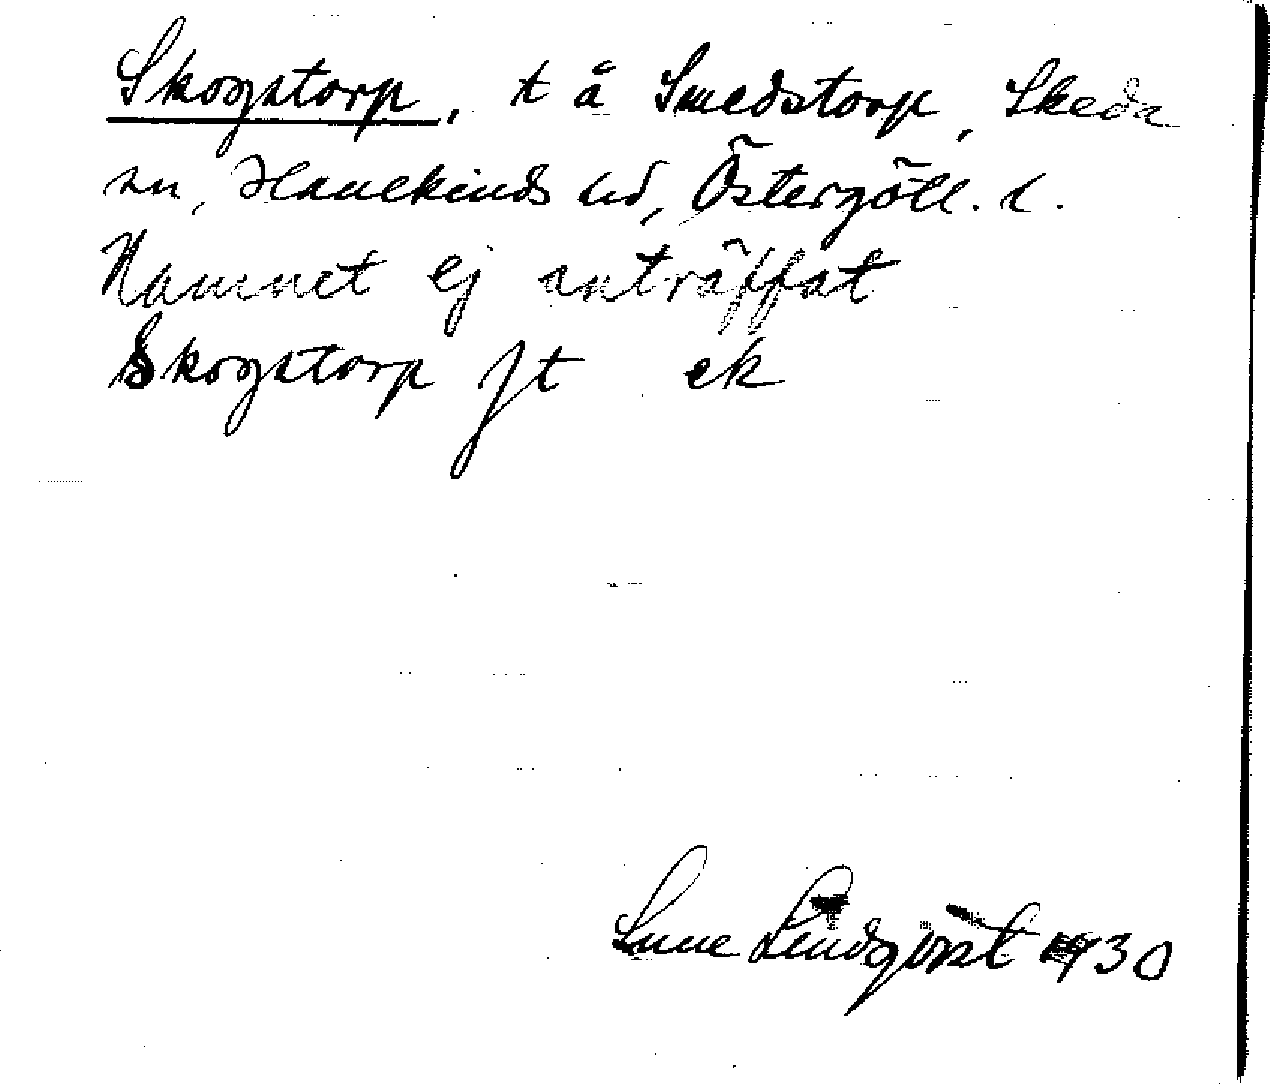 Skogstorp, t å Smedstorp, Skeda
sn, Hanekinds hd, Östergötl. l.
Namnet ej anträffat
Skogstorp jt ek
Sune Lindqvist 1930